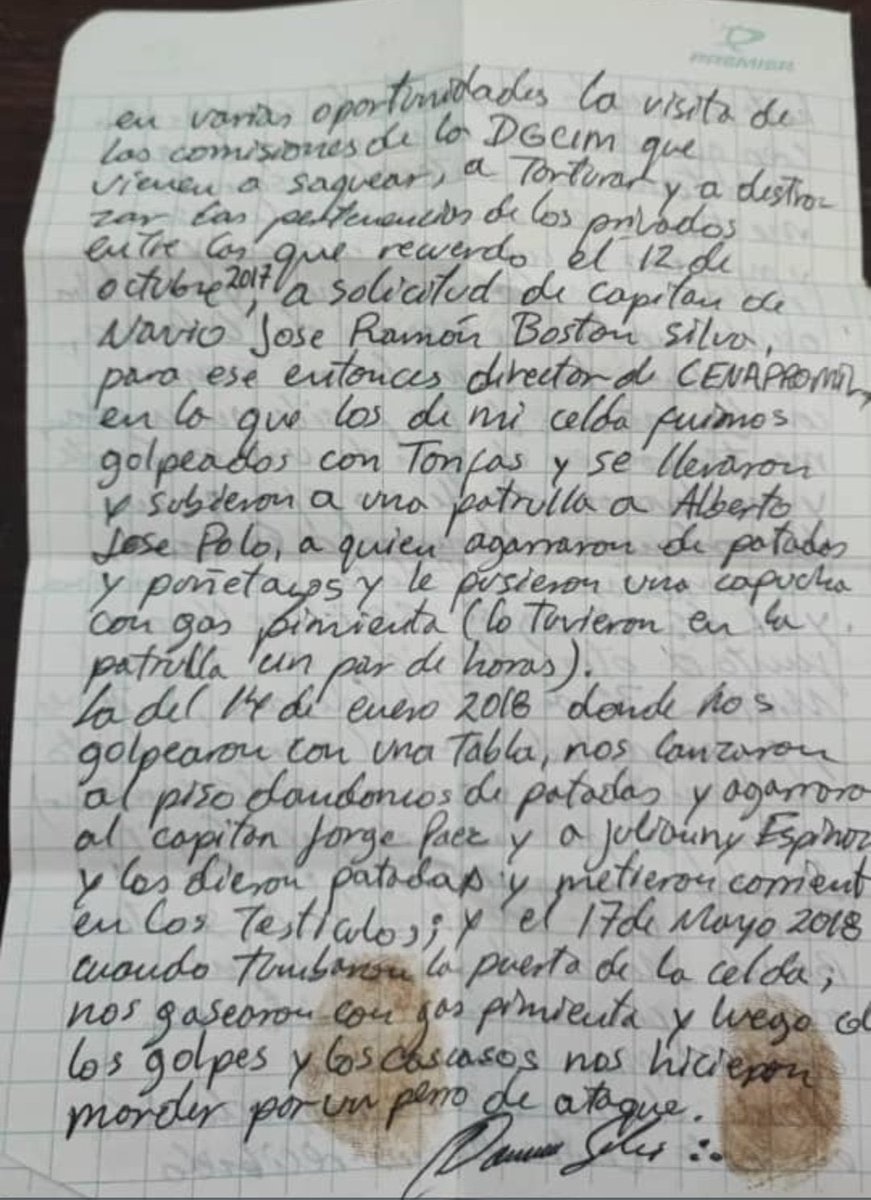 PREMIER
en varias oportunidades la visita de
las comisiones de la DGCIM que
vienen a saquear, a Torturar y a destro-
zar las pertenencias de los privados
entre las que recuerdo el 12 de
octubre 2017, a solicitud de capitan de
Navio Jose Ramón Boston Silva,
para ese entonces director de CENAPROMIL,
en lo que los de mi celda fuimos
golpeados con Tonfas y se llevaron
y subieron a una patrulla a Alberto
Jose Polo, a quien agarraron de patadas
y puñetazos y le pusieron una capucha
con gas pimienta (lo Tuvieron en la
patrulla un par de horas).
La del 14 de enero 2018 donde nos
golpearon con una Tabla, nos lanzaron
al piso dandonos de patadas y agarraro
al capitan Jorge Paez y a Julianny Espinoz
y los dieron patadas y metieron corrient
en los Testiculos; y el 17 de Mayo 2018
cuando Tumbaron la puerta de la celda;
nos gasearon con gas pimienta y luego co
los golpes y los cascasos nos hicieron
morder por un perro de ataque.